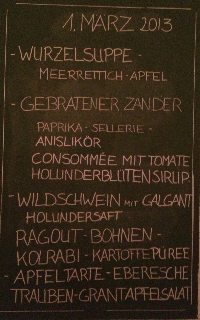 1. MÄRZ 2013
- WURZELSUPPE -
MEERRETTICH - APFEL
- GEBRATENER ZANDER
PAPRIKA - SELLERIE -
ANISLIKÖR
CONSOMMÉE MIT TOMATE
HOLUNDERBLÜTENSIRUP
- WILDSCHWEIN MIT GALGANT
HOLUNDERSAFT
RAGOUT - BOHNEN -
KOLRABI - KARTOFFELPÜREE
- APFELTARTE - EBERESCHE
TRAUBEN - GRANTAPFELSALAT